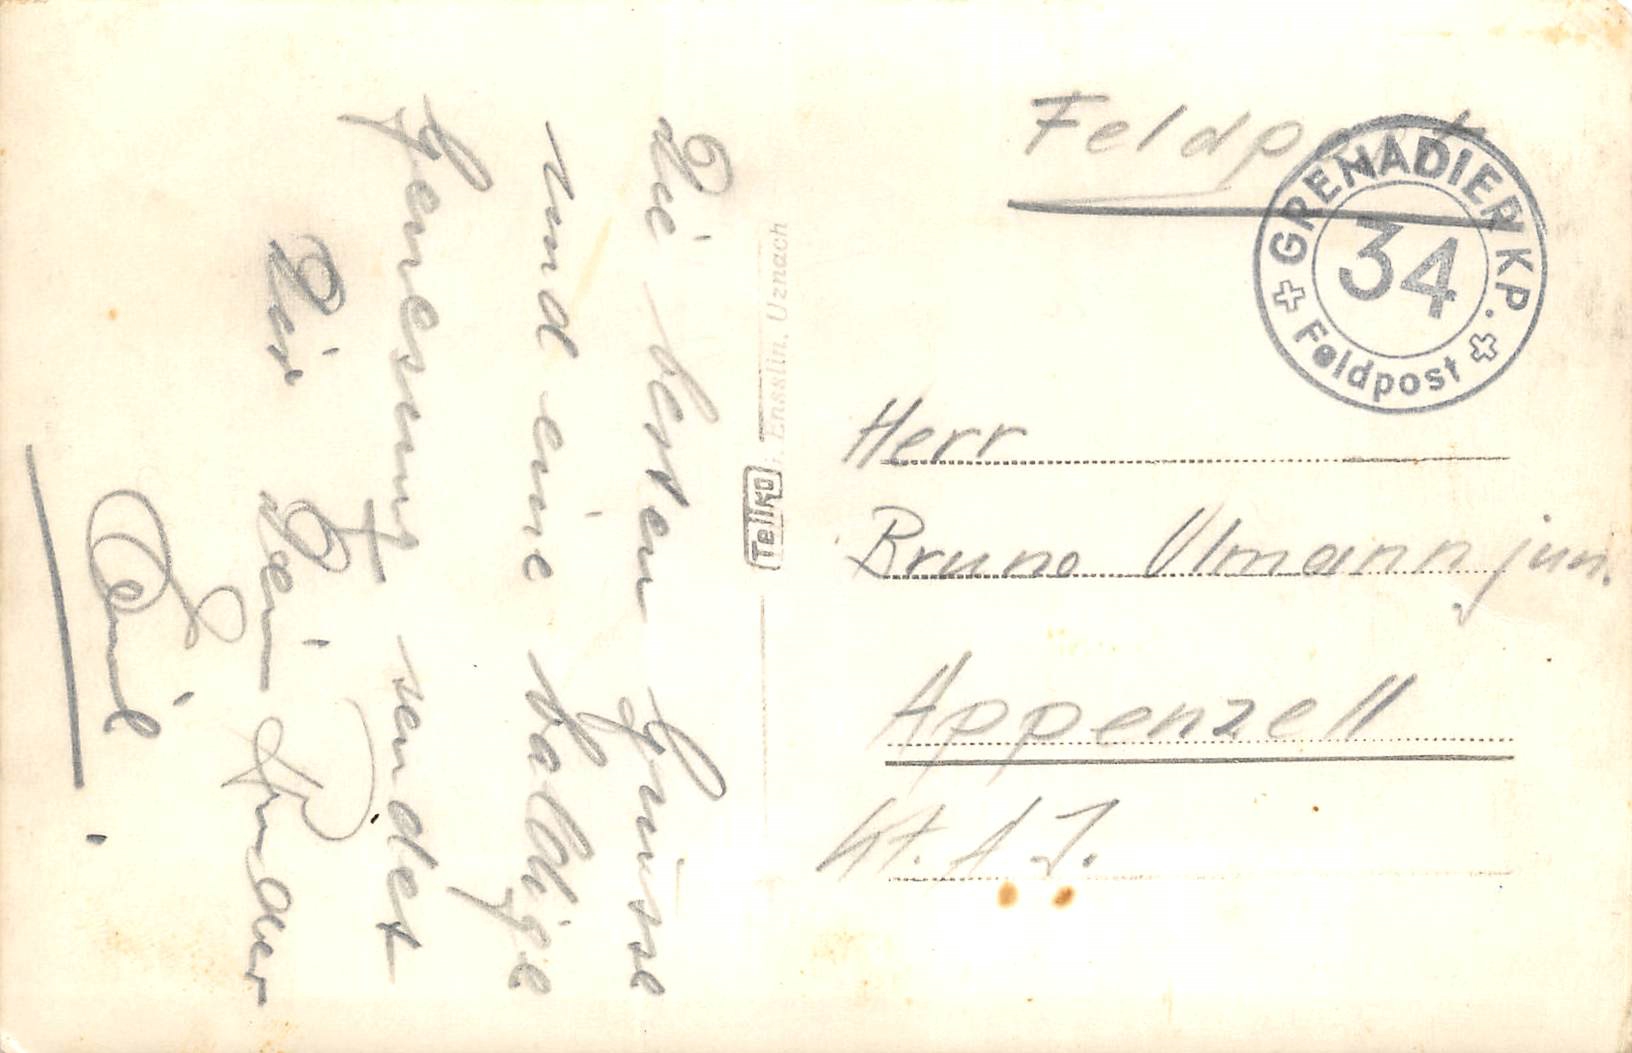 Die besten Grüsse
und eine baldige
Genesung sendet
Dir Dein Bruder
Emil
Tellko
Ensslin, Uznach
Feldpost
GRENADIER KP.
34
Feldpost
Herr
Bruno Ulmann jun.
Appenzell
Kt. A I.